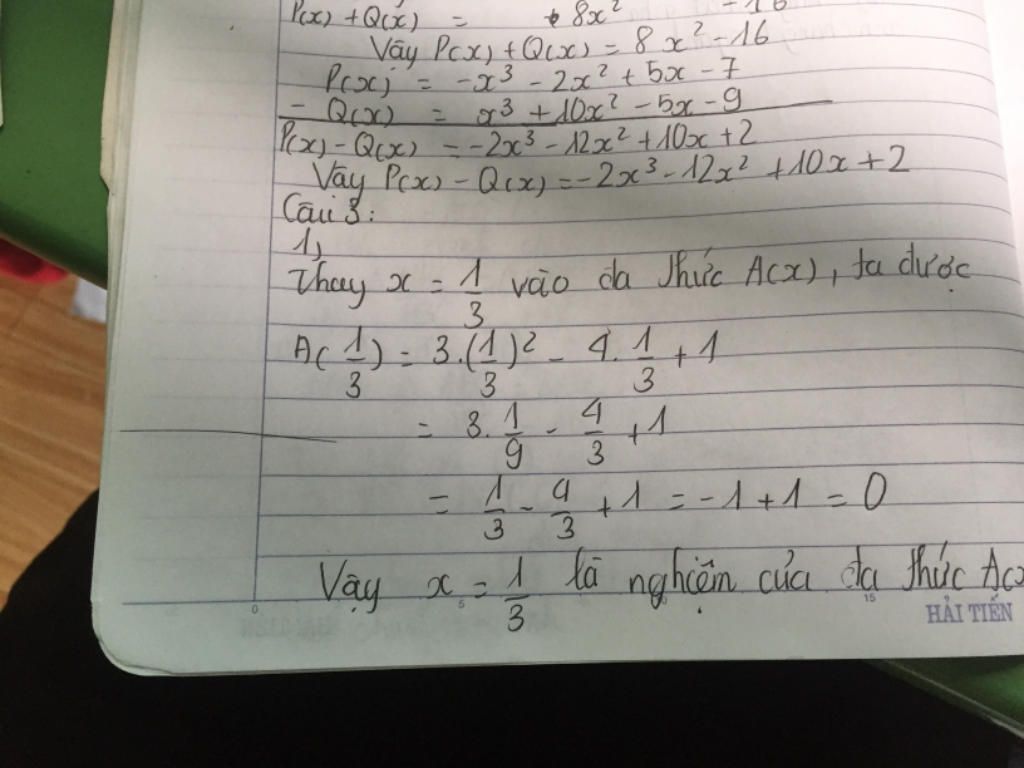 P(x) + Q(x) = + 8x² - 16
Vậy P(x) + Q(x) = 8x² - 16
P(x) = -x³ - 2x² + 5x - 7
- Q(x) = x³ + 10x² - 5x - 9
P(x) - Q(x) = -2x³ - 12x² + 10x + 2
Vậy P(x) - Q(x) = -2x³ - 12x² + 10x + 2
Câu 3:
1,
Thay x = 1/3 vào đa thức A(x), ta được
A(1/3) = 3.(1/3)² - 4.1/3 + 1
= 3.1/9 - 4/3 + 1
= 1/3 - 4/3 + 1 = -1 + 1 = 0
Vậy x = 1/3 là nghiệm của đa thức A(x
0 5 15
HẢI TIẾN